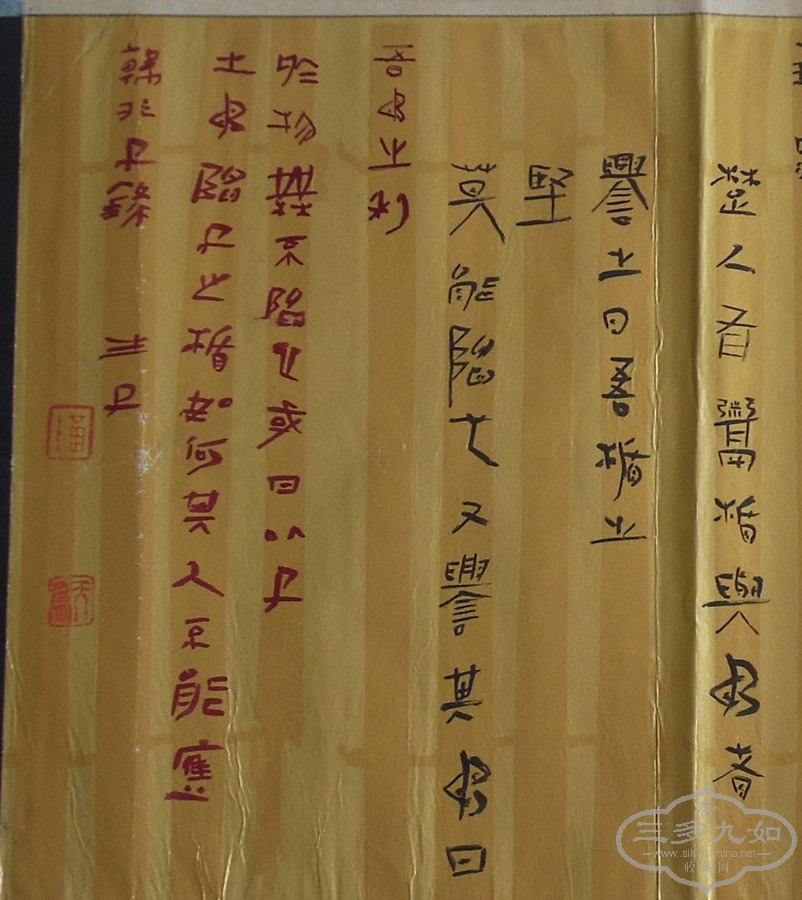 楚人有鬻楯與矛者
譽之曰吾楯之
堅
莫能陷也又譽其矛曰
吾矛之利
於物無不陷也或曰以子
之矛陷子之楯如何其人不能應
韓非子
三多九如
www.silverchina.net
收藏网